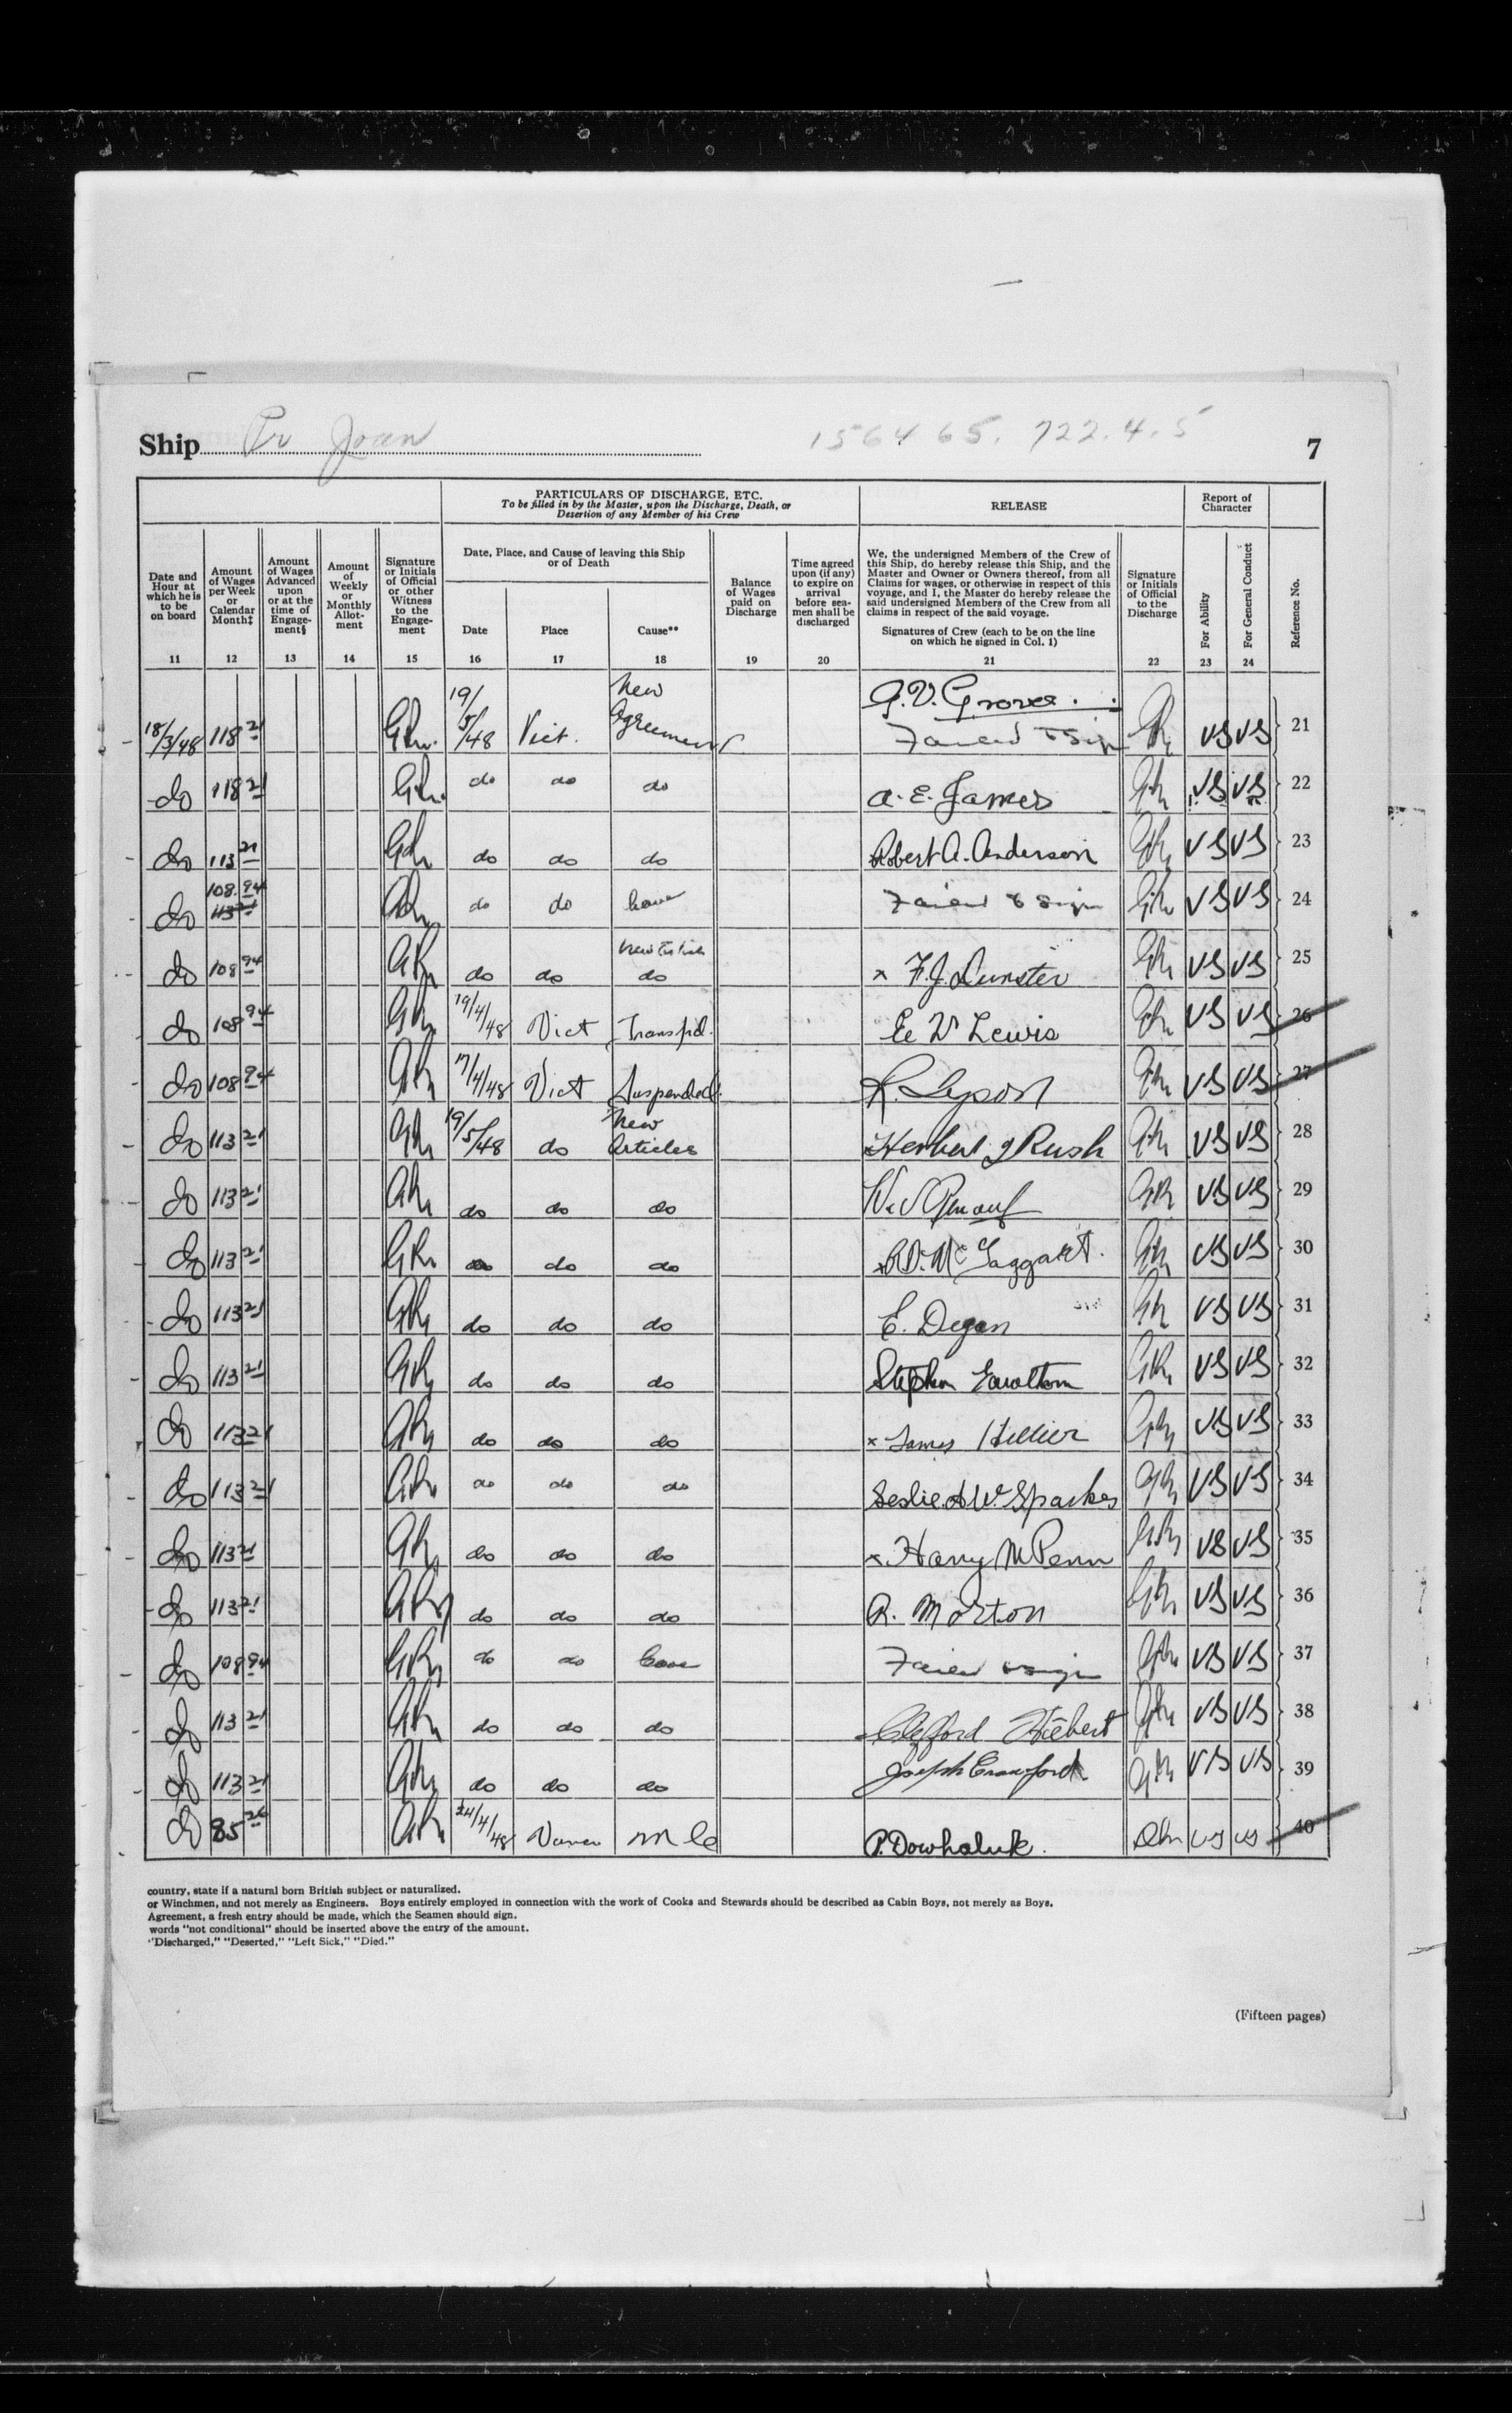 Ship Pr Joan 156465. 722.4.5 7
PARTICULARS OF DISCHARGE, ETC.
To be filled in by the Master, upon the Discharge, Death, or
Desertion of any Member of his Crew
RELEASE
Report of
Character
Date and
Hour at
which he is
to be
on board
Amount
of Wages
per Week
or
Calendar
Month‡
Amount
of Wages
Advanced
upon
or at the
time of
Engage-
ment§
Amount
of
Weekly
or
Monthly
Allot-
ment
Signature
or Initials
of Official
or other
Witness
to the
Engage-
ment
Date, Place, and Cause of leaving this Ship
or of Death
Date Place Cause**
Balance
of Wages
paid on
Discharge
Time agreed
upon (if any)
to expire on
arrival
before sea-
men shall be
discharged
We, the undersigned Members of the Crew of
this Ship, do hereby release this Ship, and the
Master and Owner or Owners thereof, from all
Claims for wages, or otherwise in respect of this
voyage, and I, the Master do hereby release the
said undersigned Members of the Crew from all
claims in respect of the said voyage.
Signatures of Crew (each to be on the line
on which he signed in Col. 1)
Signature
or Initials
of Official
to the
Discharge
For Ability
For General Conduct
Reference No.
11 12 13 14 15 16 17 18 19 20 21 22 23 24
18/3/48 118 21 19/5/48 Vict. New Agreement A.V. Grove. Failed to Sign VS VS 21
do 118 21 do do do A. E. James VS VS 22
do 113 21 do do do Robert A. Anderson VS VS 23
do 108.94 113 21 do do Failed to Sign VS VS 24
do 108 94 do do do × F.J. Dunster VS VS 25
do 108 94 19/4/48 Vict Transfd. Lewis VS VS 26
do 108 94 17/4/48 Vict Suspended. VS VS 27
do 113 21 19/5/48 do New Articles Herbert J Rush VS VS 28
do 113 21 do do do VS VS 29
do 113 21 do do do McTaggart. VS VS 30
do 113 21 do do do E. Degan VS VS 31
do 113 21 do do do Stephen VS VS 32
do 113 21 do do do × James Hillier VS VS 33
do 113 21 do do do Leslie A W. Sparkes VS VS 34
do 113 21 do do do ×. Harry M Penn VS VS 35
do 113 21 do do do R. Morton VS VS 36
do 108 94 do do Failed to Sign VS VS 37
do 113 21 do do do Clifford Wiebert VS VS 38
do 113 21 do do do Joseph Crawford VS VS 39
do 85 26 24/4/48 Vancr m c P. Dowhaluk. VS VS 40
country, state if a natural born British subject or naturalized.
or Winchmen, and not merely as Engineers. Boys entirely employed in connection with the work of Cooks and Stewards should be described as Cabin Boys, not merely as Boys.
Agreement, a fresh entry should be made, which the Seamen should sign.
words "not conditional" should be inserted above the entry of the amount.
"Discharged," "Deserted," "Left Sick," "Died."
(Fifteen pages)